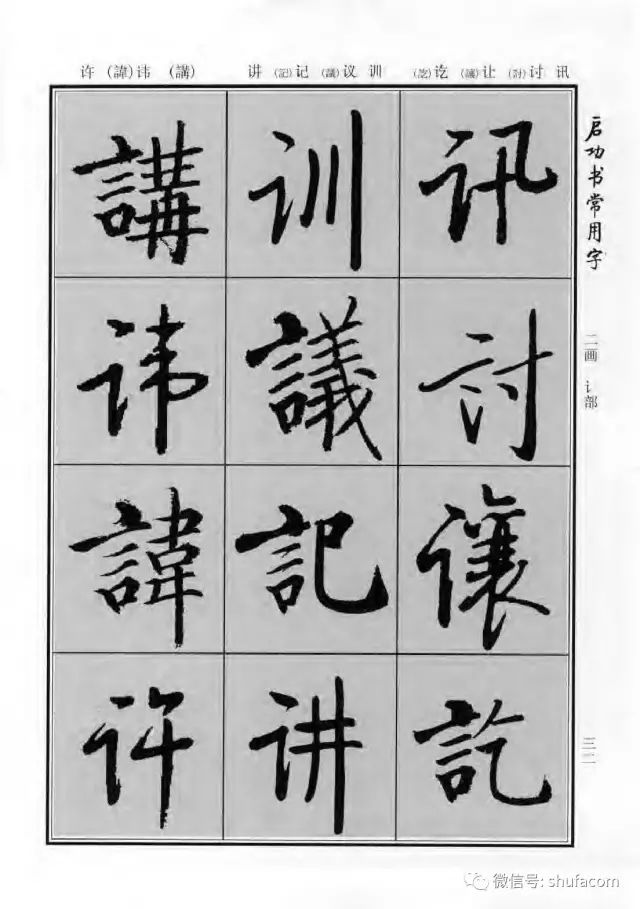 许 (諱)讳 (講) 讲 (記)记 (議)议 训 (訖)讫 (讓)让 (討)讨 讯
启功书常用字
二画 讠部
三二
讯討让訖
训議記讲
講讳諱许
微信号: shufacom